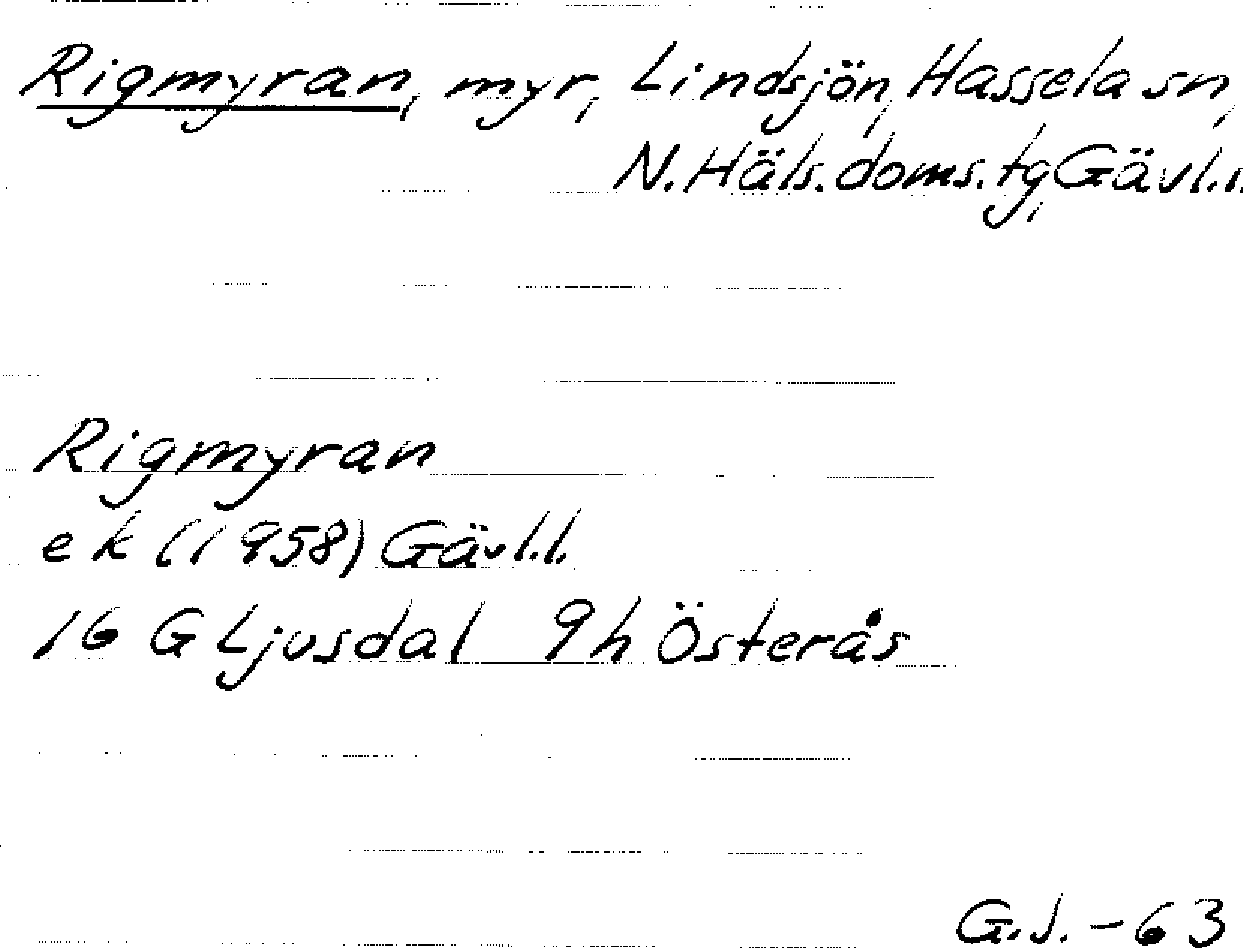 Rigmyran, myr, Lindsjön, Hassela sn,
N. Häls. doms. tg, Gävl.l.
Rigmyran
ek (1958) Gävl.l.
16 G Ljusdal 9h Österås
G.J. -63